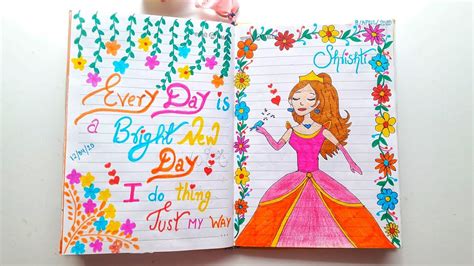 Every Day is
a Bright New
12/04/20
Day
I do thing
Just MY WAY
Shrishti